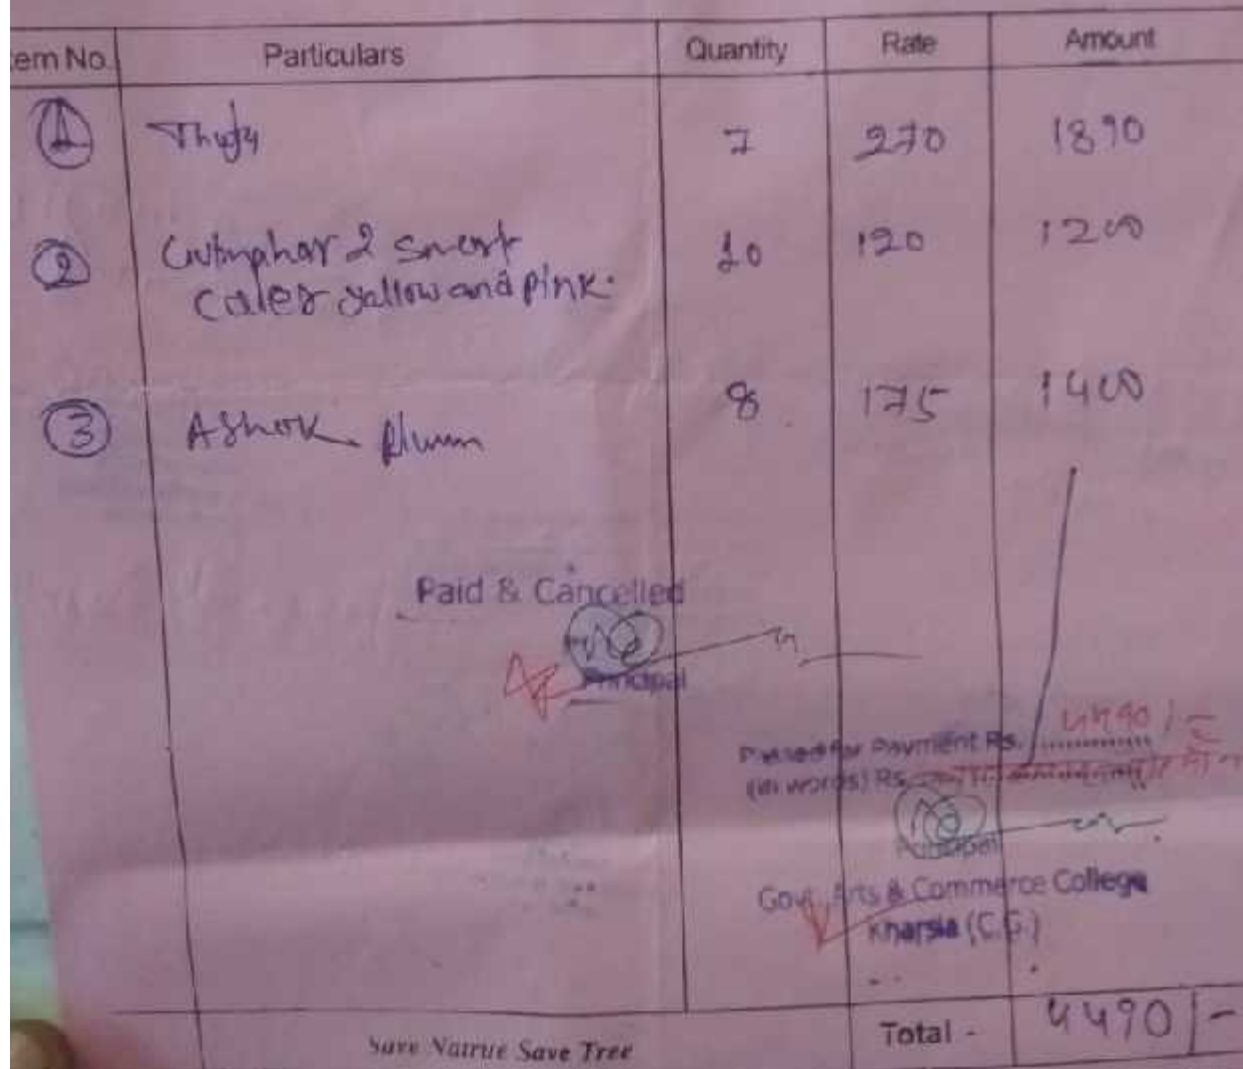 em No. Particulars Quantity Rate Amount
1 Thuja 7 270 1890
2 Gulmahor 2 
Coler yallow and pink. 10 120 1200
3 Ashok plum 8 175 1400
Paid & Cancelled
Principal
Passed for Payment Rs. 4490/-
(in words) Rs.
Principal
Govt. Arts & Commerce College
Kharsia (C.G.)
Total - 4490/-
Save Natrue Save Tree